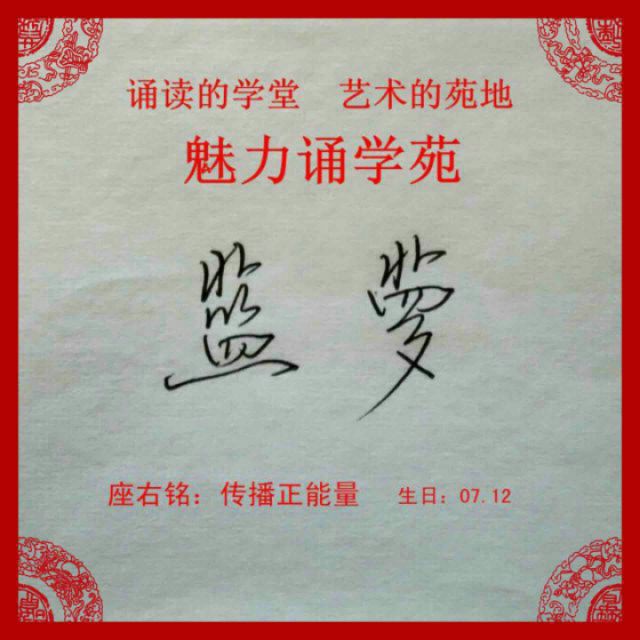 诵读的学堂 艺术的苑地
魅力诵学苑
蓝 夢
座右铭：传播正能量 生日：07.12